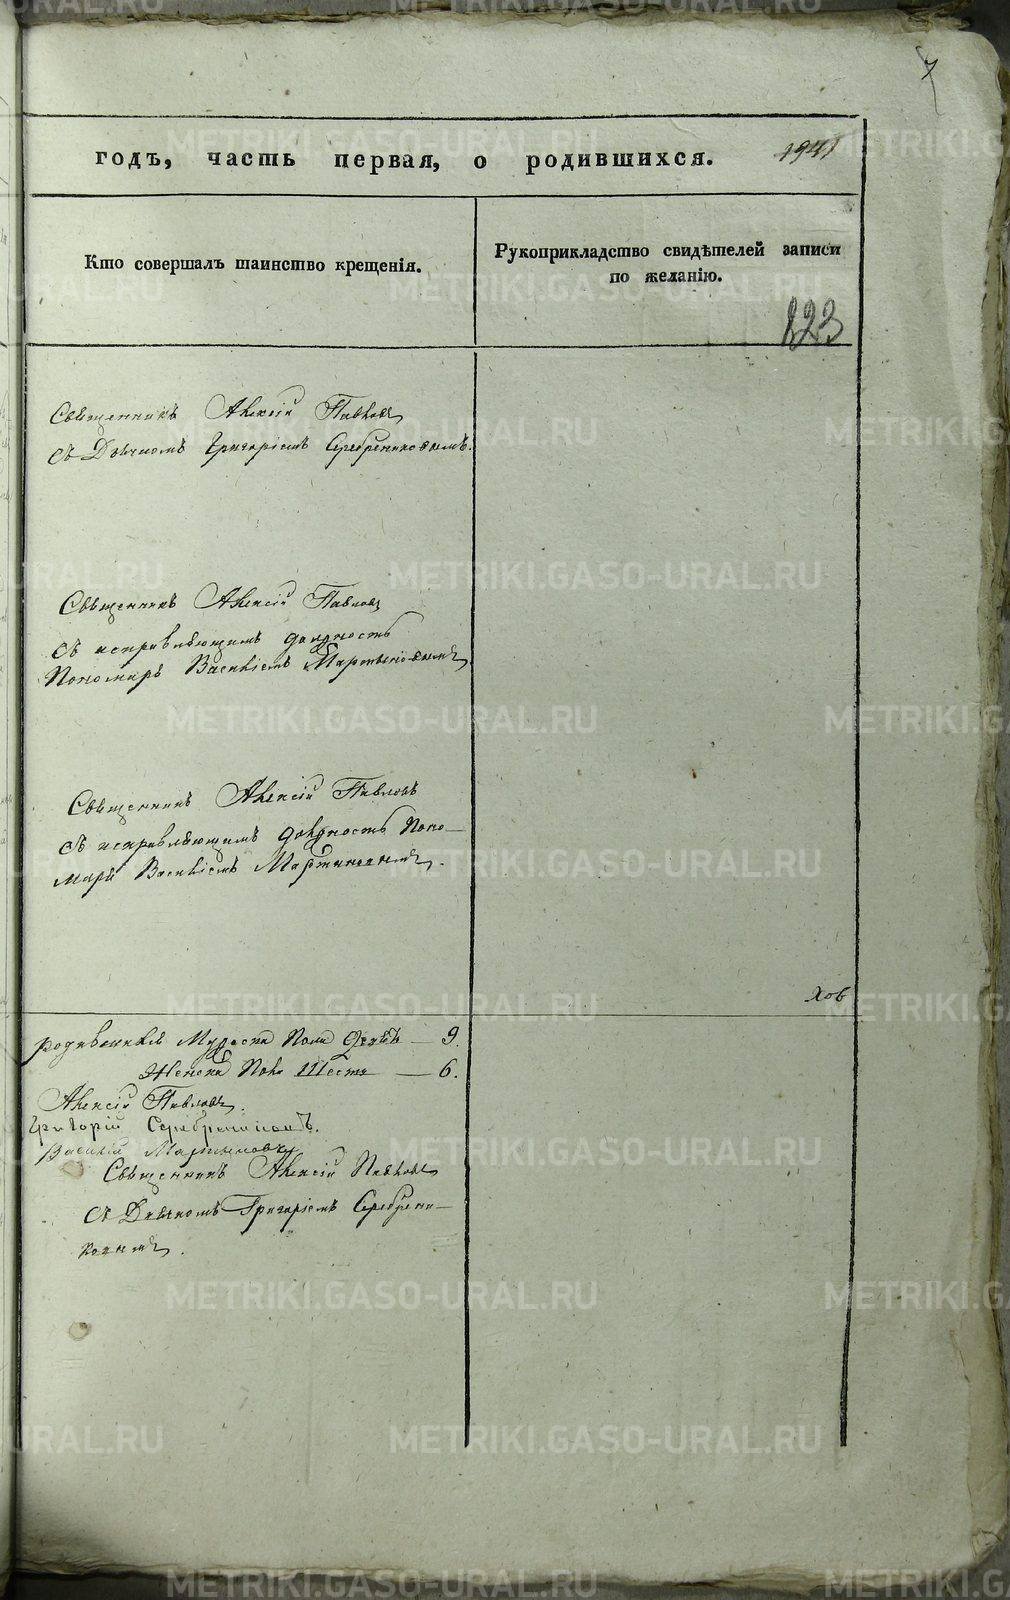 7
годъ, часть первая, о родившихся.
Кто совершалъ таинство крещенія.
Рукоприкладство свидѣтелей записи
по желанію.
823
Священникъ Алексій Павловъ
съ Дьячкомъ Григоріемъ Серебрениковымъ.
Священникъ Алексій Павловъ
съ исправляющимъ должность
Пономаря Василіемъ Мартыновымъ
Священникъ Алексій Павловъ
съ исправляющимъ должность Поно-
маря Василіемъ Мартыновымъ.
ховъ
родившихся Мужеска Пола Девять — 9.
Женска Пола Шесть — 6.
Алексій Павловъ.
Григорій Серебрениковъ.
Василій Мартыновъ
Священникъ Алексій Павловъ
съ Дьячкомъ Григоріемъ Серебрени-
ковымъ.
METRIKI.GASO-URAL.RU